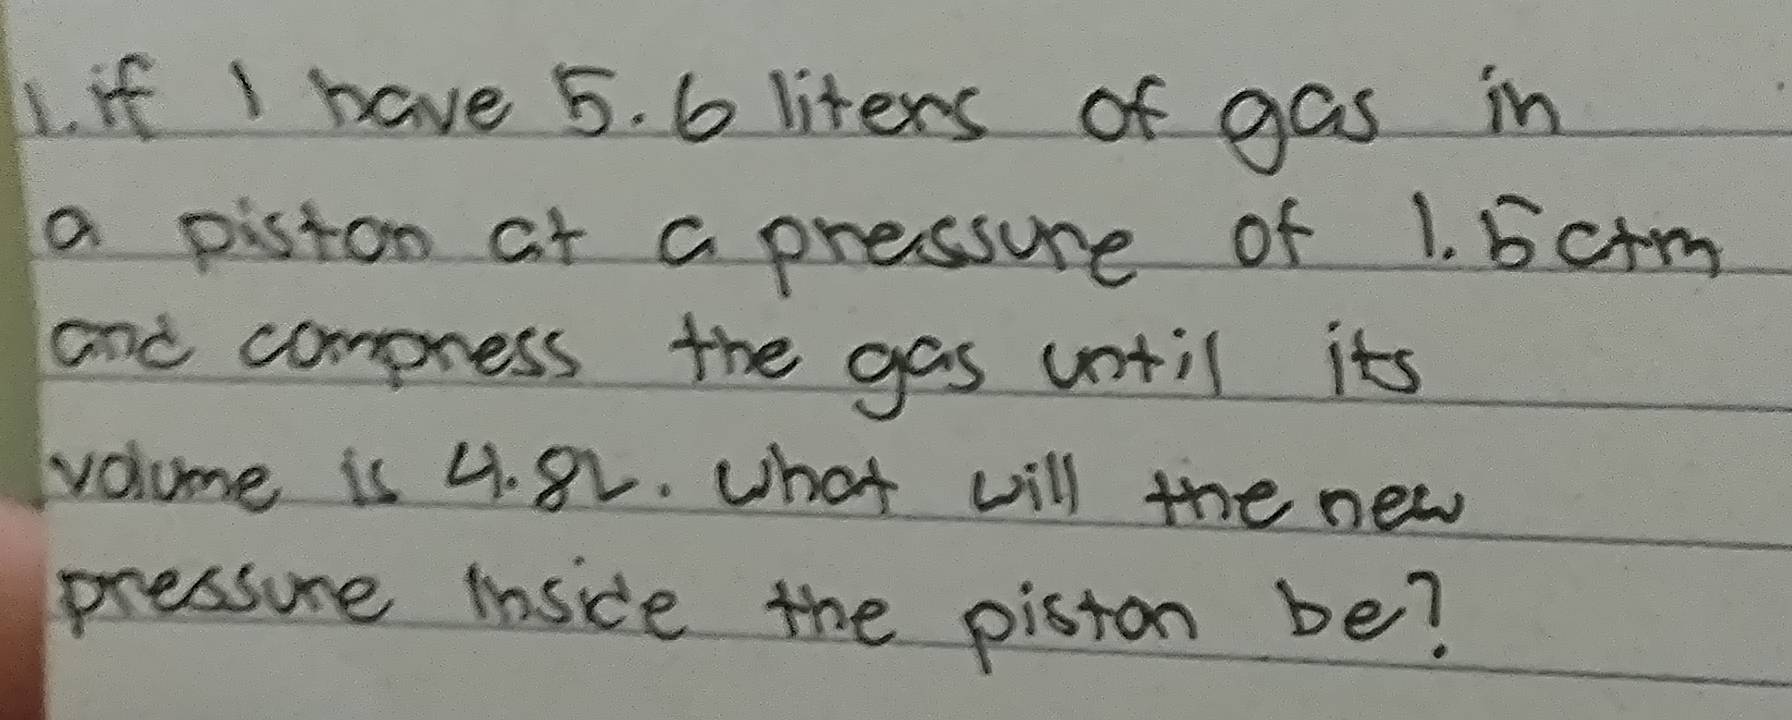 1. if I have 5.6 liters of gas in
a piston at a pressure of 1.5 atm
and compress the gas until its
volume is 4.8L. What will the new
pressure inside the piston be?